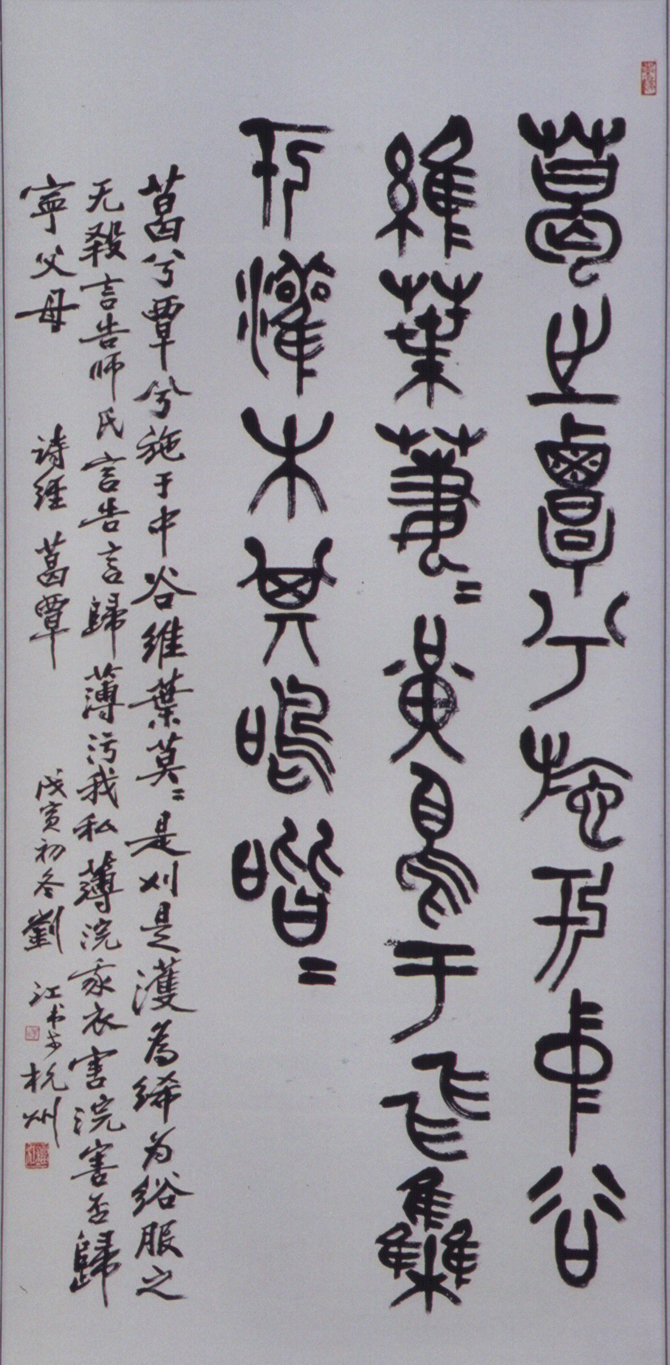 葛之覃兮施于中谷
維葉萋〻黄鳥于飛集
于灌木其鳴喈〻
葛兮覃兮施于中谷維葉莫〻是刈是濩為絺为綌服之
无斁言告師氏言告言歸薄污我私薄浣我衣害浣害否歸
寧父母 詩經 葛覃 戊寅初冬劉江书于杭州